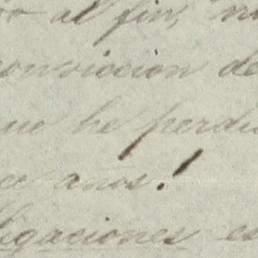 al fin, n
conviccion de
ue he perdi
ce anos!
ligaciones es